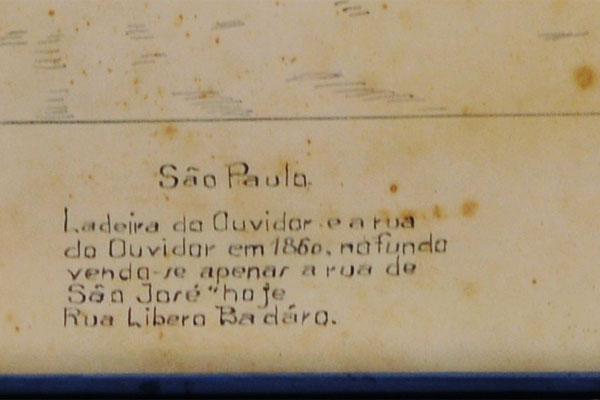 São Paulo.
Ladeira do Ouvidor e a rua
do Ouvidor em 1860, no fundo
vendo-se apenas a rua de
São José "hoje
Rua Libero Badáro.